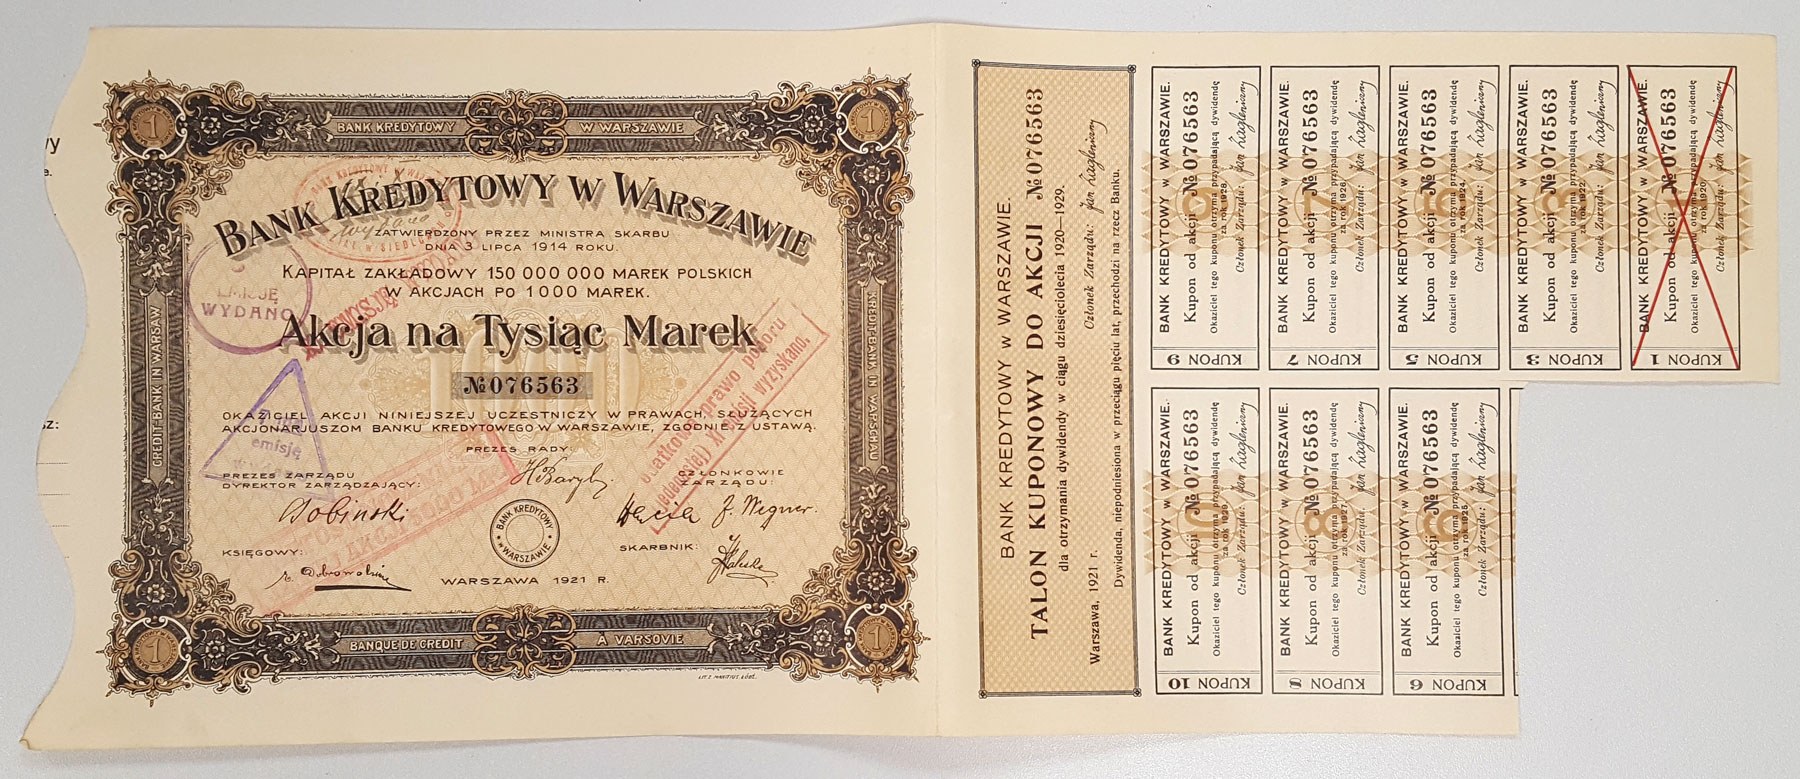 BANK KREDYTOWY W WARSZAWIE
CREDIT-BANK IN WARSAW
KREDIT-BANK IN WARSCHAU
BANQUE DE CREDIT A VARSOVIE
BANK KREDYTOWY W WARSZAWIE
ZATWIERDZONY PRZEZ MINISTRA SKARBU
DNIA 3 LIPCA 1914 ROKU.
KAPITAŁ ZAKŁADOWY 150 000 000 MAREK POLSKICH
W AKCJACH PO 1000 MAREK.
EMISJĘ
WYDANO
Akcja na Tysiąc Marek
№ 076563
OKAZICIEL AKCJI NINIEJSZEJ UCZESTNICZY W PRAWACH, SŁUŻĄCYCH
AKCJONARJUSZOM BANKU KREDYTOWEGO W WARSZAWIE, ZGODNIE Z USTAWĄ.
emisję
prawo poboru
XI emisji wyzyskano.
PREZES RADY:
PREZES ZARZĄDU
DYREKTOR ZARZĄDZAJĄCY:
CZŁONKOWIE
ZARZĄDU:
BANK KREDYTOWY
W WARSZAWIE
KSIĘGOWY:
SKARBNIK:
WARSZAWA 1921 R.
BANK KREDYTOWY W WARSZAWIE.
TALON KUPONOWY DO AKCJI № 076563
dla otrzymania dywidendy w ciągu dziesięciolecia 1920–1929.
Członek Zarządu: Jan Zagleniczny
Warszawa, 1921 r.
Dywidenda, niepodniesiona w przeciągu pięciu lat, przechodzi na rzecz Banku.
BANK KREDYTOWY W WARSZAWIE.
Kupon od akcji № 076563
Okaziciel tego kuponu otrzyma przypadającą dywidendę
za rok 1928.
Członek Zarządu: Jan Zagleniczny
KUPON 9
BANK KREDYTOWY W WARSZAWIE.
Kupon od akcji № 076563
Okaziciel tego kuponu otrzyma przypadającą dywidendę
za rok 1926.
Członek Zarządu: Jan Zagleniczny
KUPON 7
BANK KREDYTOWY W WARSZAWIE.
Kupon od akcji № 076563
Okaziciel tego kuponu otrzyma przypadającą dywidendę
za rok 1924.
Członek Zarządu: Jan Zagleniczny
KUPON 5
BANK KREDYTOWY W WARSZAWIE.
Kupon od akcji № 076563
Okaziciel tego kuponu otrzyma przypadającą dywidendę
za rok 1922.
Członek Zarządu: Jan Zagleniczny
KUPON 3
BANK KREDYTOWY W WARSZAWIE.
Kupon od akcji № 076563
Okaziciel tego kuponu otrzyma przypadającą dywidendę
za rok 1920.
Członek Zarządu: Jan Zagleniczny
KUPON 1
BANK KREDYTOWY W WARSZAWIE.
Kupon od akcji № 076563
Okaziciel tego kuponu otrzyma przypadającą dywidendę
za rok 1929.
Członek Zarządu: Jan Zagleniczny
KUPON 10
BANK KREDYTOWY W WARSZAWIE.
Kupon od akcji № 076563
Okaziciel tego kuponu otrzyma przypadającą dywidendę
za rok 1927.
Członek Zarządu: Jan Zagleniczny
KUPON 8
BANK KREDYTOWY W WARSZAWIE.
Kupon od akcji № 076563
Okaziciel tego kuponu otrzyma przypadającą dywidendę
za rok 1925.
Członek Zarządu: Jan Zagleniczny
KUPON 6